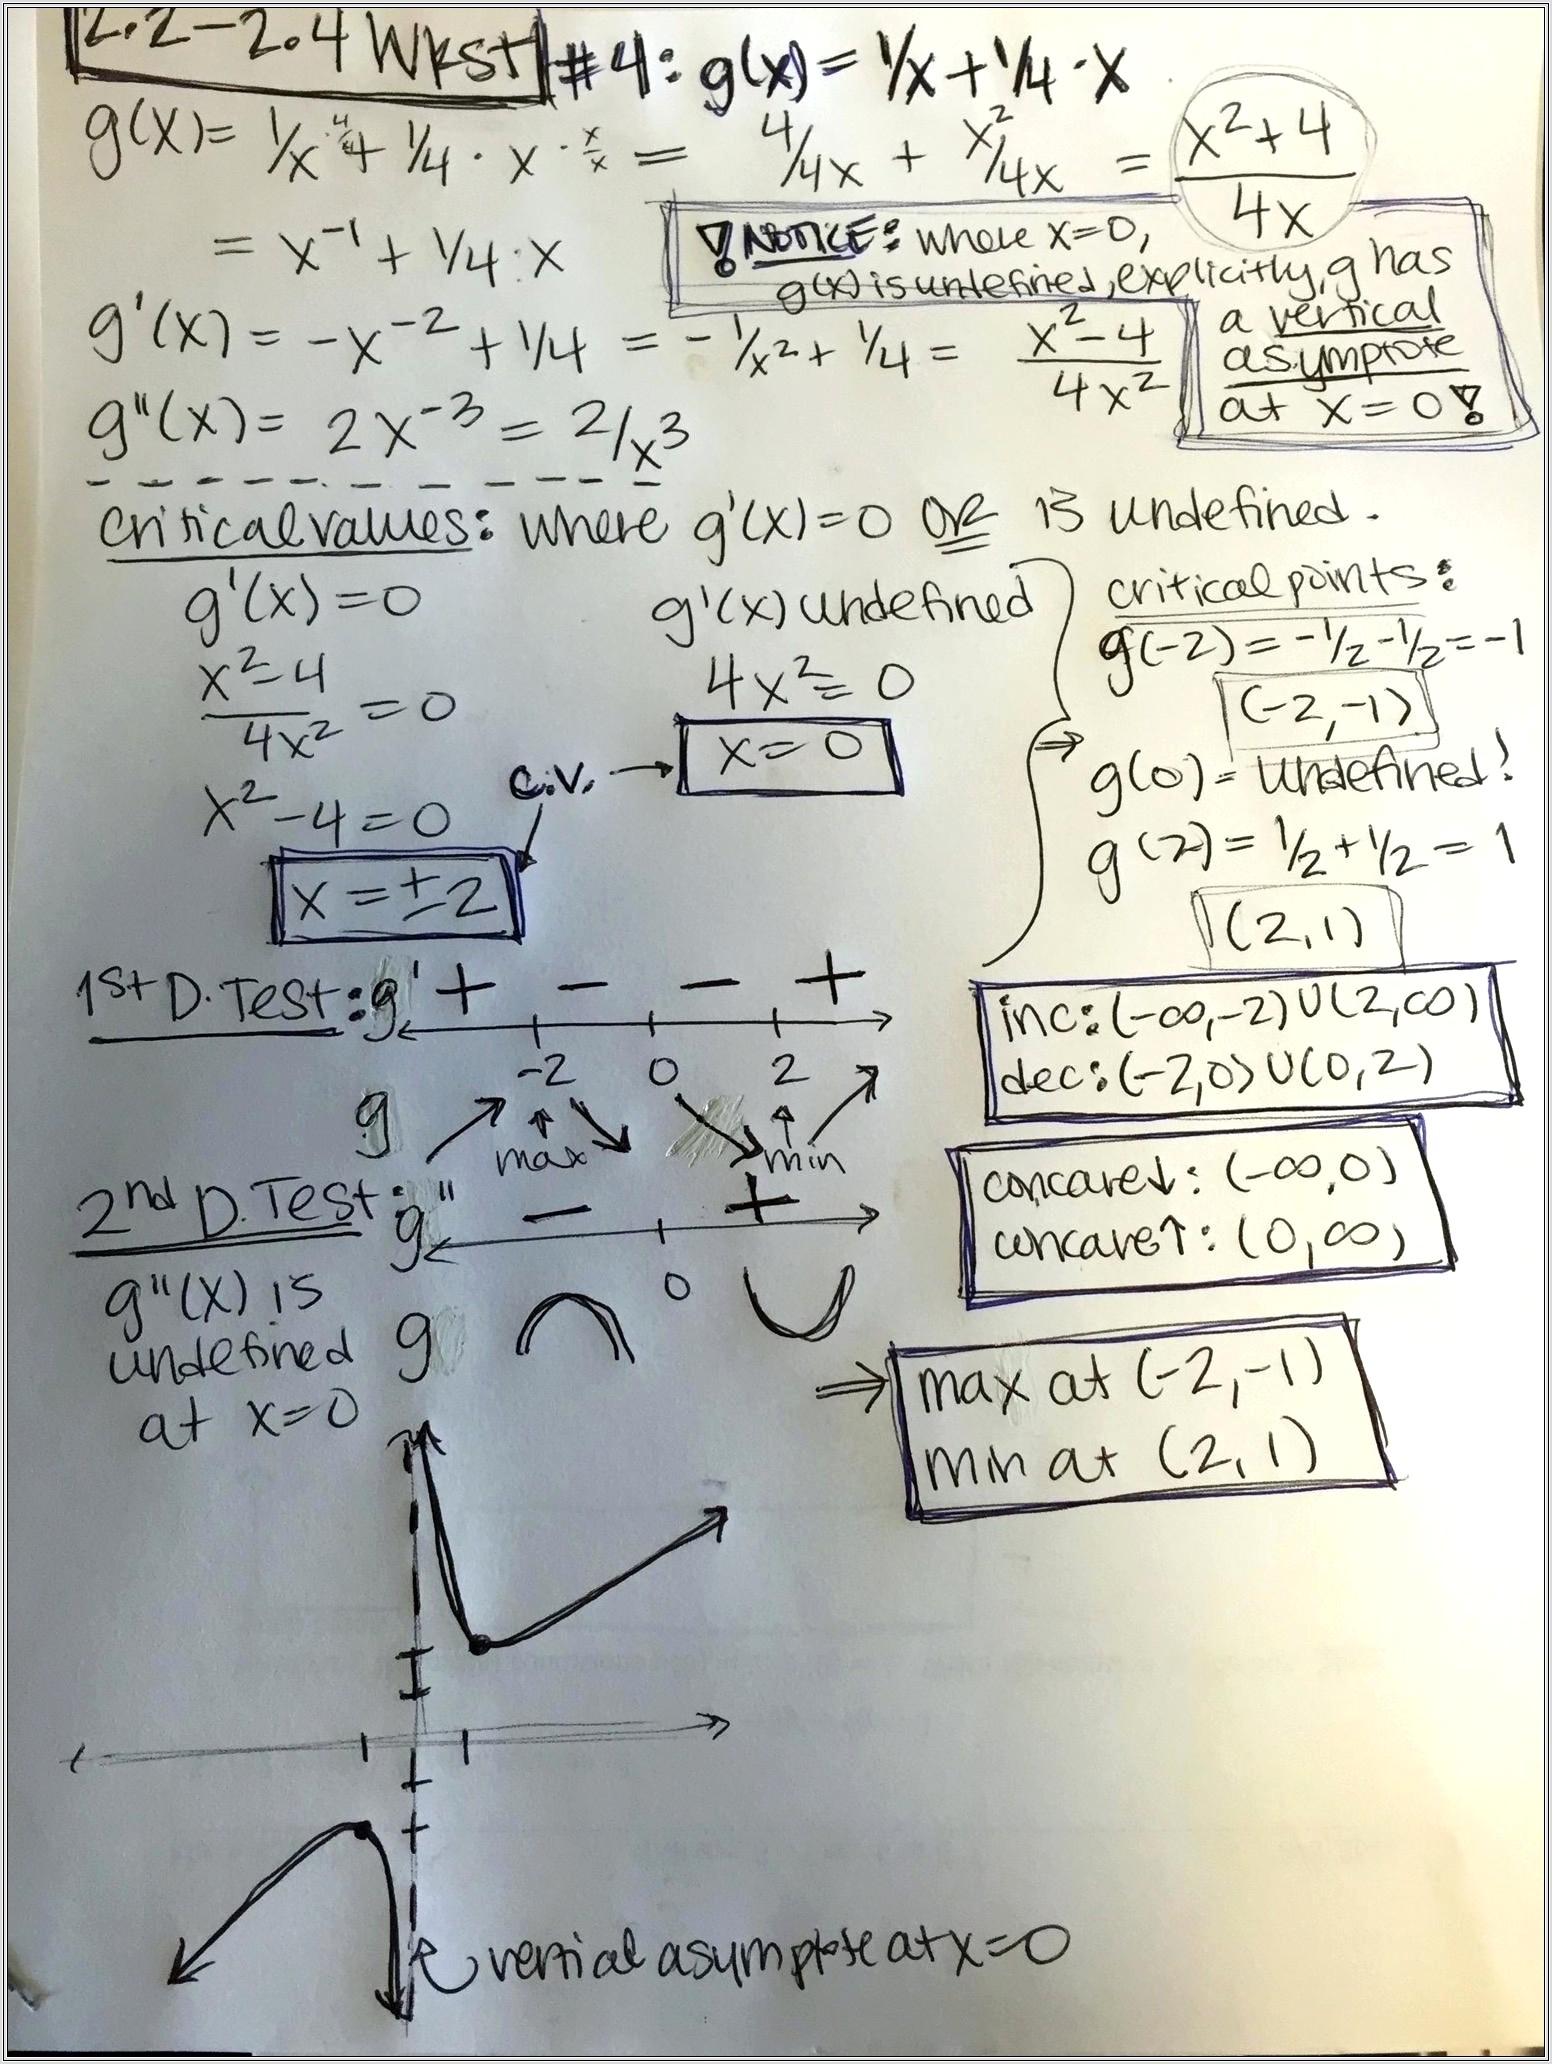 2.2-2.4 Wkst #4: g(x) = 1/x + 1/4 · x
g(x) = 1/x · 4/4 + 1/4 · x · x/x = 4/4x + x²/4x = x²+4 / 4x
= x⁻¹ + 1/4 · x
! NOTICE: where x=0,
g(x) is undefined, explicitly, g has
a vertical
asymptote
at x=0!
g'(x) = -x⁻² + 1/4 = -1/x² + 1/4 = x²-4 / 4x²
g"(x) = 2x⁻³ = 2/x³
critical values: where g'(x)=0 OR is undefined.
g'(x)=0
x²-4 / 4x² = 0
x²-4=0
x=±2
c.v.
g'(x) undefined
4x²=0
x=0
critical points:
g(-2) = -1/2 -1/2 = -1
(-2,-1)
⇒ g(0) = undefined!
g(2) = 1/2 + 1/2 = 1
(2,1)
1st D. Test: g' + - - +
-2 0 2
g
max min
inc: (-∞,-2)∪(2,∞)
dec: (-2,0)∪(0,2)
2nd D. Test: g" - +
0
g"(x) is
undefined
at x=0
g
concave↓: (-∞,0)
concave↑: (0,∞)
⇒ max at (-2,-1)
min at (2,1)
vertial asymptote at x=0